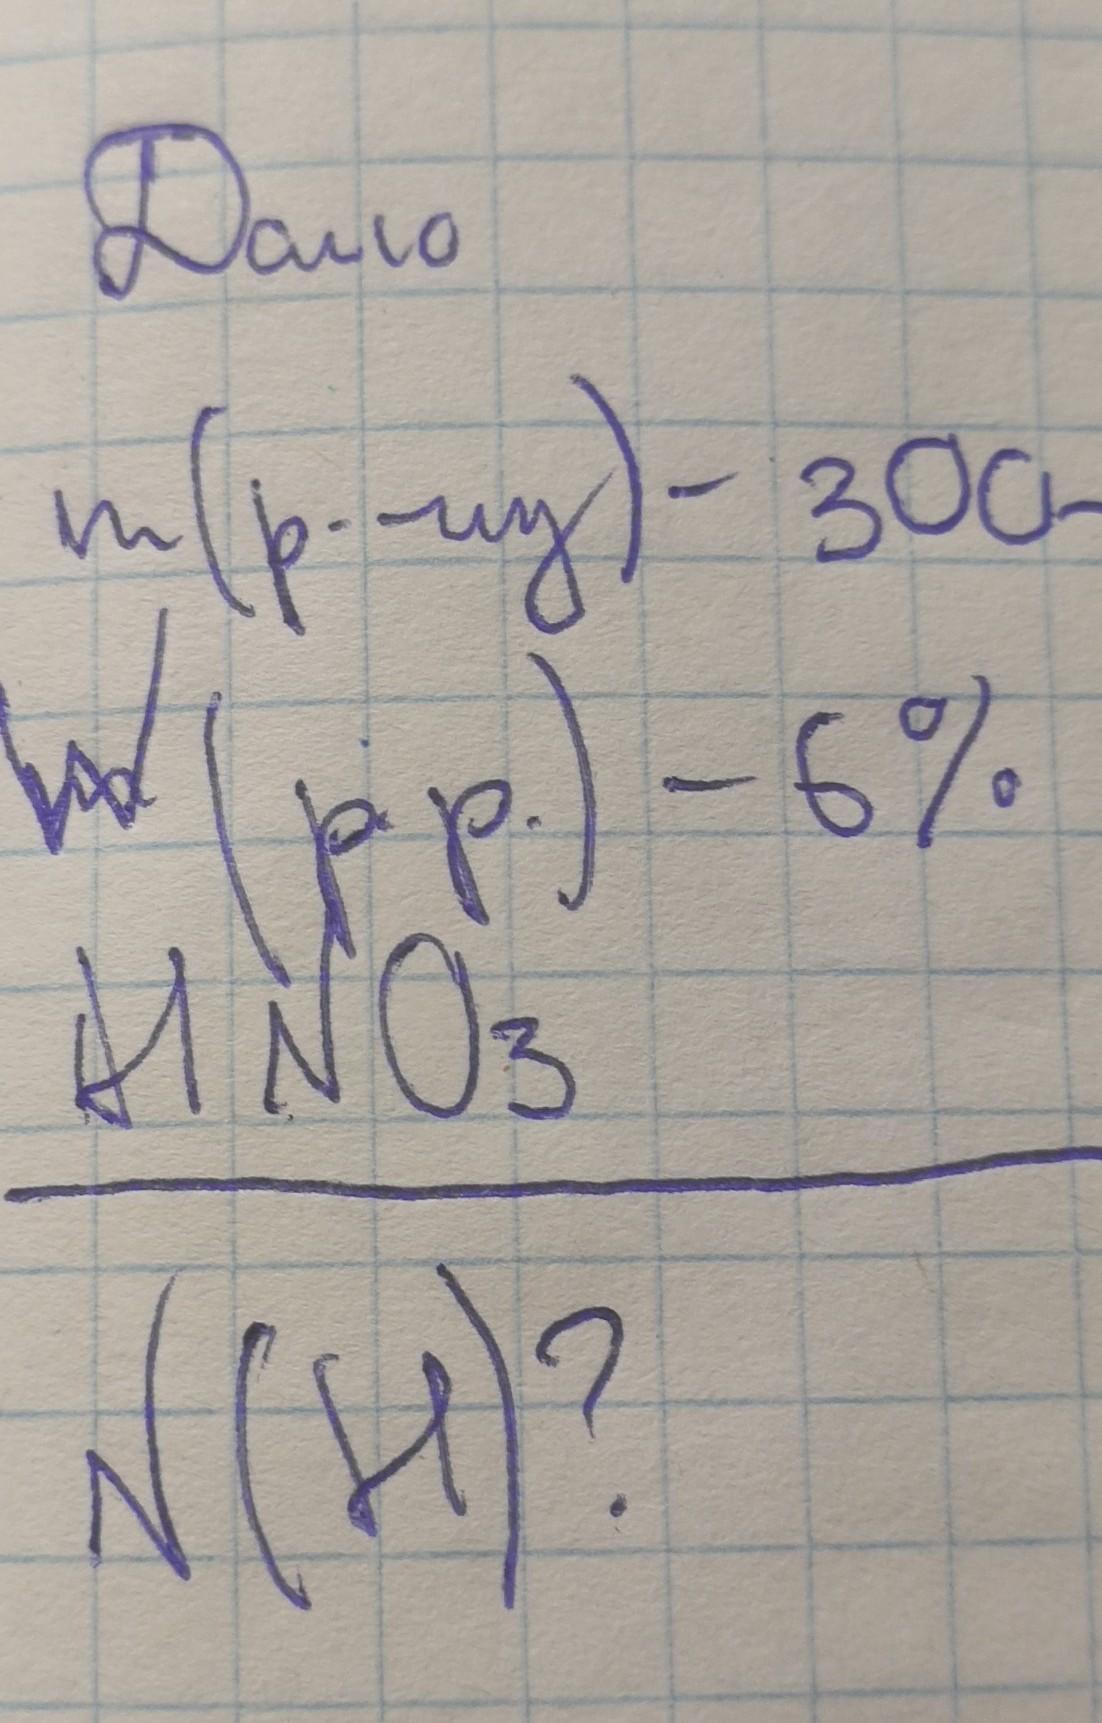 Дано
m(р.-ну) - 300
W(р.р.) - 6%
HNO3
N(H)?